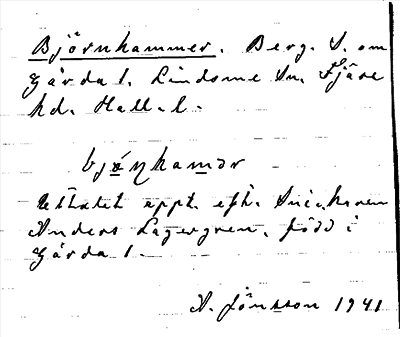 Björnhammer. Berg. S. om
Gårda 1. Lindome Sn. Fjäre
hd. Hall. l.
bjǿɳhamər
Uttalet uppt. eft. Snickaren
Anders Lagergren, född i
Gårda 1.
A. Jönsson 1941